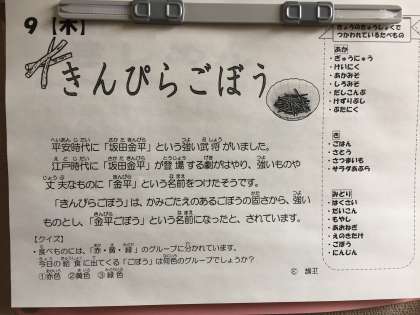 9【木】
きんぴらごぼう
平安時代に「坂田金平」という強い武将がいました。
江戸時代に「坂田金平」が登場する劇がはやり、強いものや
丈夫なものに「金平」という名前をつけたそうです。
「きんぴらごぼう」は、かみごたえのあるごぼうの固さから、強い
ものとし、「金平ごぼう」という名前になったと、されています。
【クイズ】
・食べものには、「赤・黄・緑」のグループに分かれています。
今日の給食に出てくる「ごぼう」は何色のグループでしょうか?
①赤色 ②黄色 ③緑色
きょうのきゅうしょくで
つかわれているたべもの
あか
・ぎゅうにゅう
・けいにく
・あかみそ
・しろみそ
・だしこんぶ
・けずりぶし
・ぶたにく
き
・ごはん
・さとう
・さつまいも
・サラダあぶら
みどり
・はくさい
・だいこん
・もやし
・あおねぎ
・えのきたけ
・ごぼう
・にんじん